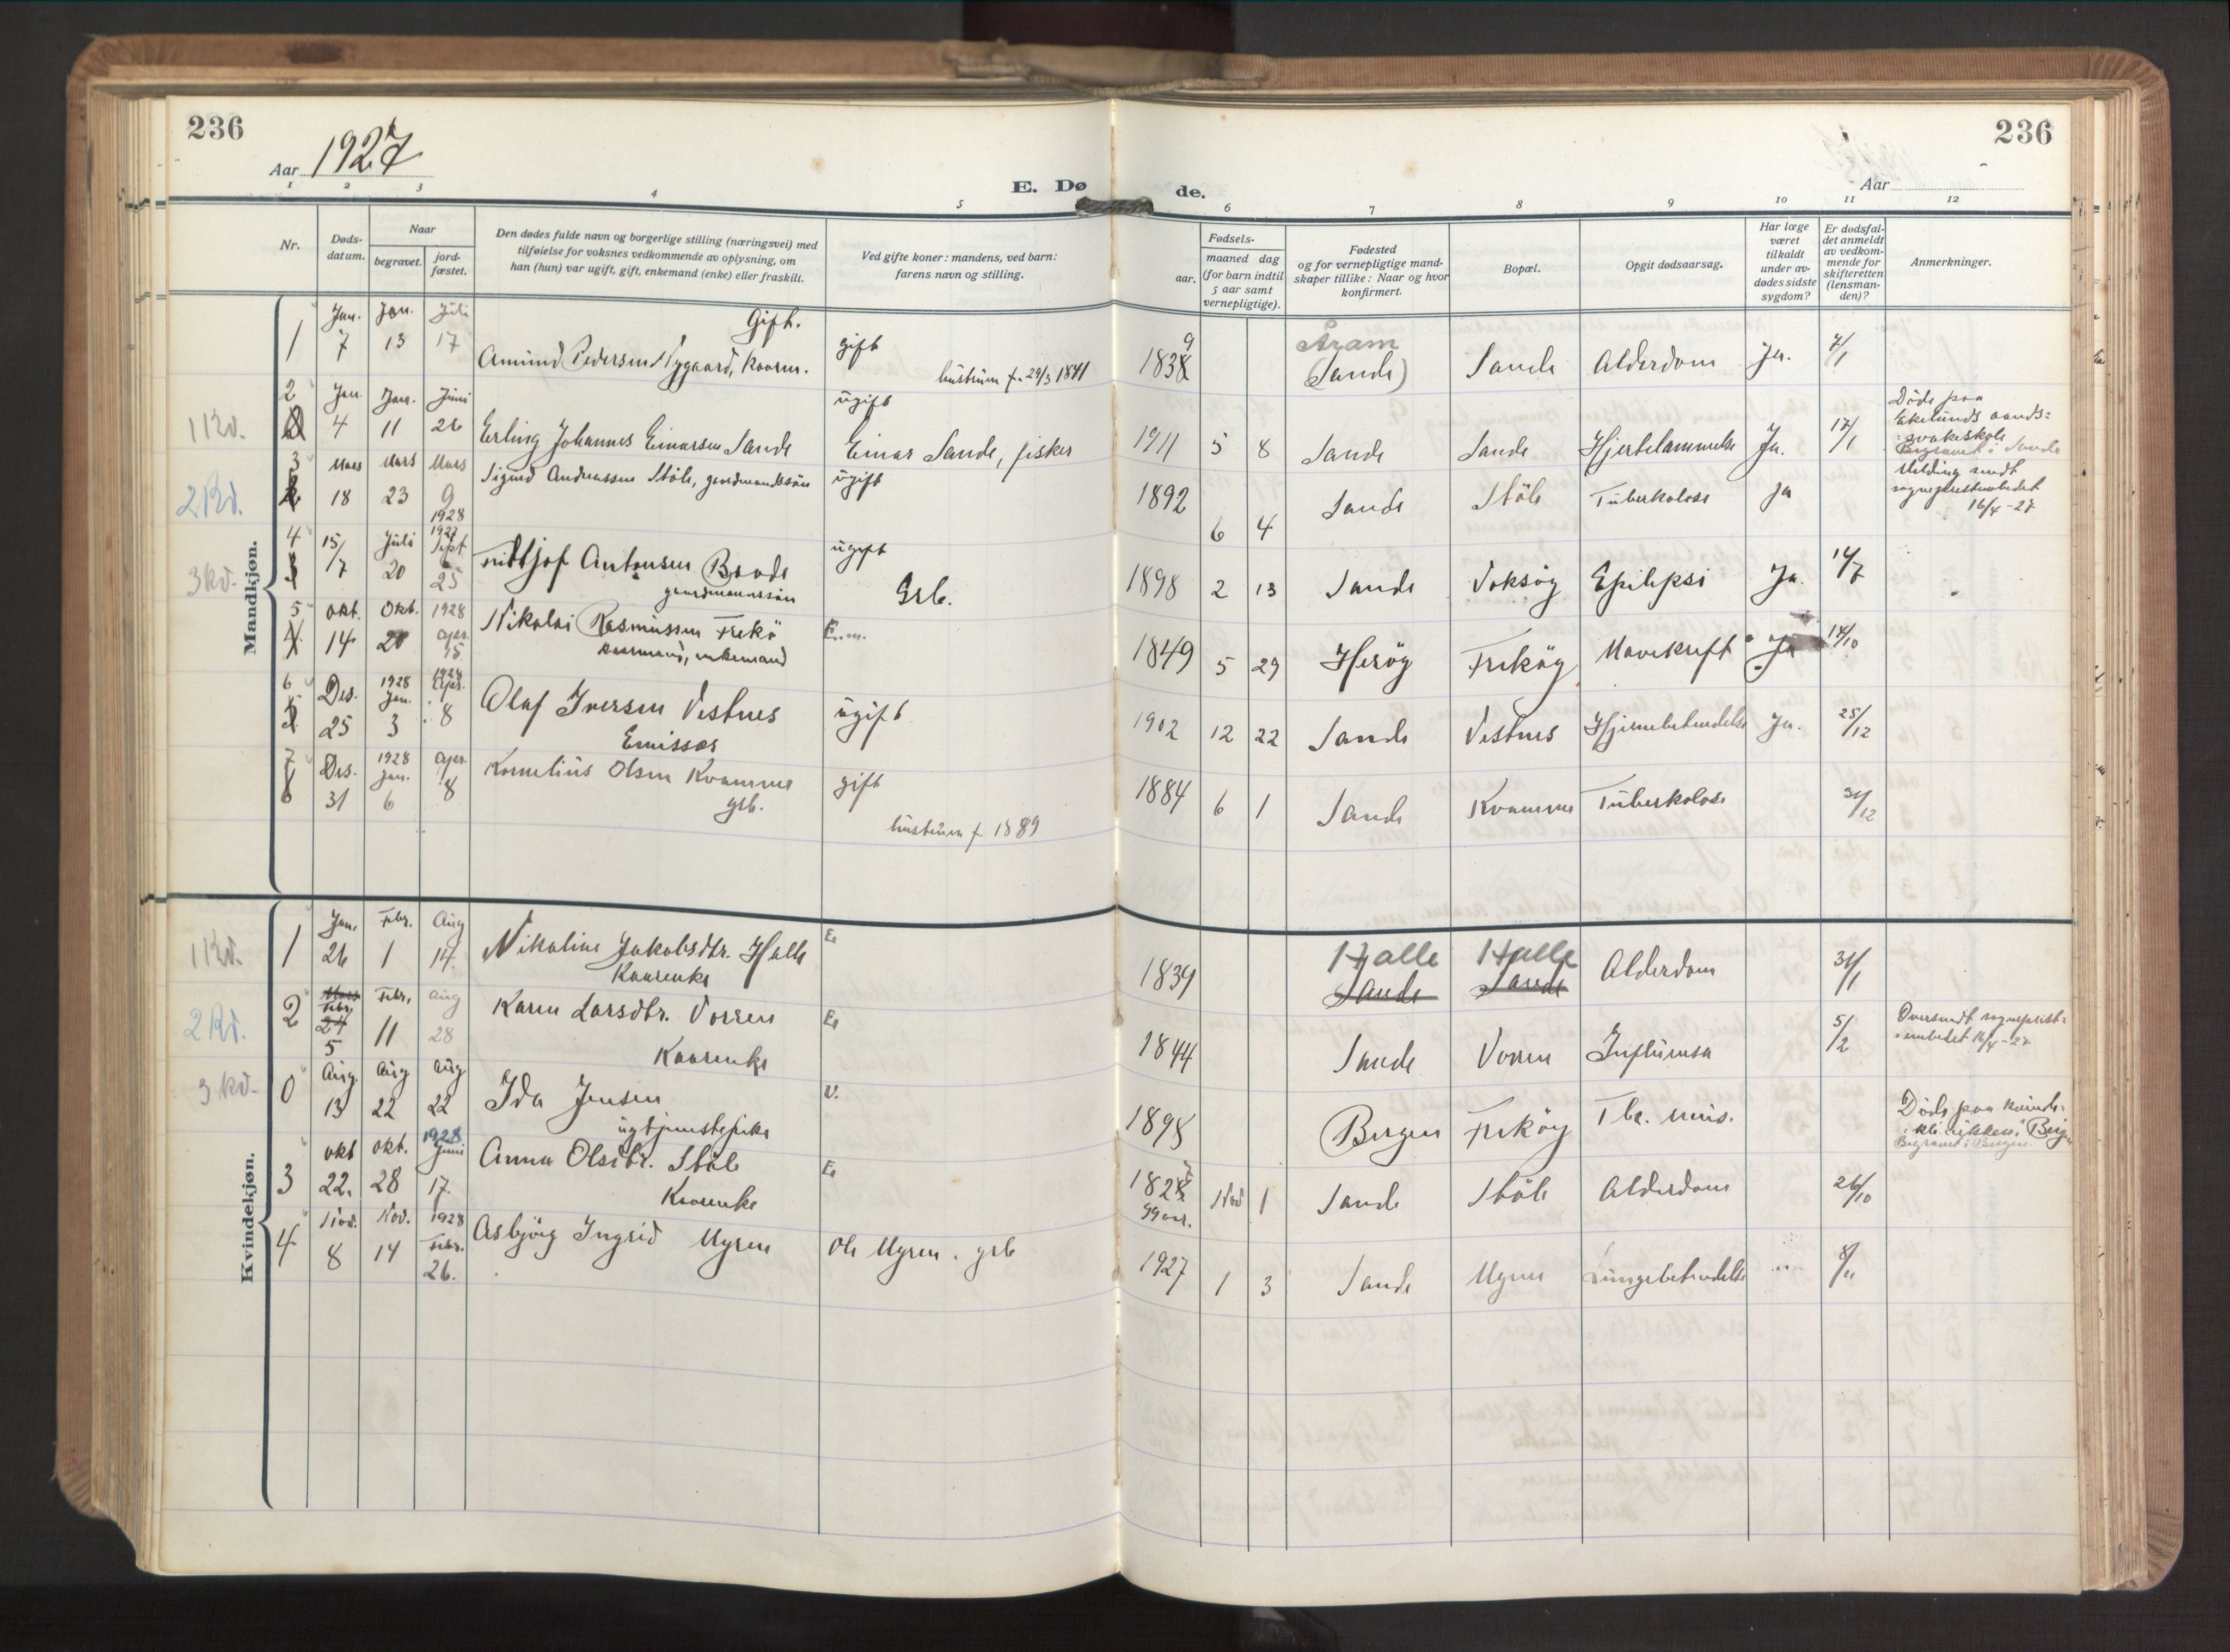 236
236
Aar 1927
Aar
E. Dø
de.
1 2 3 4 5 6 7 8 9 10 11 12
Nr.
Døds-
datum.
Naar
begravet.
jord-
fæstet.
Den dødes fulde navn og borgerlige stilling (næringsvei) med
tilføielse for voksnes vedkommende av oplysning, om
han (hun) var ugift, gift, enkemand (enke) eller fraskilt.
Ved gifte koner: mandens, ved barn:
farens navn og stilling.
Fødsels-
aar.
maaned dag
(for barn indtil
5 aar samt
vernepligtige).
Fødested
og for vernepligtige mand-
skaper tillike: Naar og hvor
konfirmert.
Bopæl.
Opgit dødsaarsag.
Har læge
været
tilkaldt
under av-
dødes sidste
sygdom?
Er dødsfal-
det anmeldt
av vedkom-
mende for
skifteretten
(lensman-
den)?
Anmerkninger.
Mandkjøn.
1 Jan. 7 Jan. 13 Juli 17 Gift.
Amund Pedersen Nygaard, kaarm. gift
hustrum f. 29/3 1841
1839 Aram (Sande) Sande Alderdom Ja. 7/1
1 Kv.
2 Jan. 4 Jan. 11 Juni 26 Erling Johannes Einarsen Sande ugift
Einar Sande, fisker 1911 5 8 Sande Sande Hjertelammelse Ja. 17/1
Døde paa
Ekelunds aands=
=svakeskole
Begravet i Sande
2 Kv.
3 Mars 18 Mars 23 Mars 9 1928 Sigurd Andreassen Støle, gaardmandssøn ugift
1892 6 4 Sande Støle Tuberkolose Ja
Melding sendt
sogneprestembedet
16/4-27
3 kv.
4 15/7 Juli 20 1927 Sept. 25 Fridtjof Antonsen Brode ugift
gaardmannssøn Grb.
1898 2 13 Sande Voksøy Epilepsi Ja. 14/7
5 Okt. 14 Okt. 20 1928 Apr. 15 Nikolai Rasmussen Frekø E.m.
kaarmand, enkemand
1849 5 29 Herøy Frekøy Mavekreft Ja 17/10
6 Des. 25 1928 Jan. 3 1928 Apr. 8 Olaf Iversen Vestnes ugift
Emissær
1902 12 22 Sande Vestnes Hjernebetendelse Ja. 25/12
7 Des. 31 1928 Jan. 6 Apr. 8 Kornelius Olsen Kvamme gift
grb.
hustrum f. 1889
1884 6 1 Sande Kvamme Tuberkolose 31/12
Kvindekjøn.
1 Kv.
1 Jan. 26 Febr. 1 Aug 14. Nikoline Jakobsdtr. Halle E.
Kaarenke
1839 Halle Sande Halle Sande Alderdom 31/1
2 Kv.
2 Mars Febr. 24 5 Febr. 11 Aug 28 Karen Larsdtr. Vorren E.
Kaarenke
1844 Sande Vorren Influensa 5/2
Oversendt sogneprest=
=embedet 16/4-27
3 kv.
0 Aug. 13 Aug 22 Aug 22 Ida Jensen U.
ug tjenestepike
1898 Bergen Frekøy Tb. mis.
Døde paa kvinde-
klinikken i Bergen
Begravet i Bergen.
3 Okt 22. Okt. 28 1928 Juni 17. Anna Olsdtr. Støle E.
Kaarenke
1827 99 aar. Nov 1 Sande Støle Alderdom 26/10
4 Nov. 8 Nov. 14 1928 Febr. 26. Asbjørg Ingrid Myren
Ole Myren. grb
1927 1 3 Sande Myren Lungebetendelse 8/11